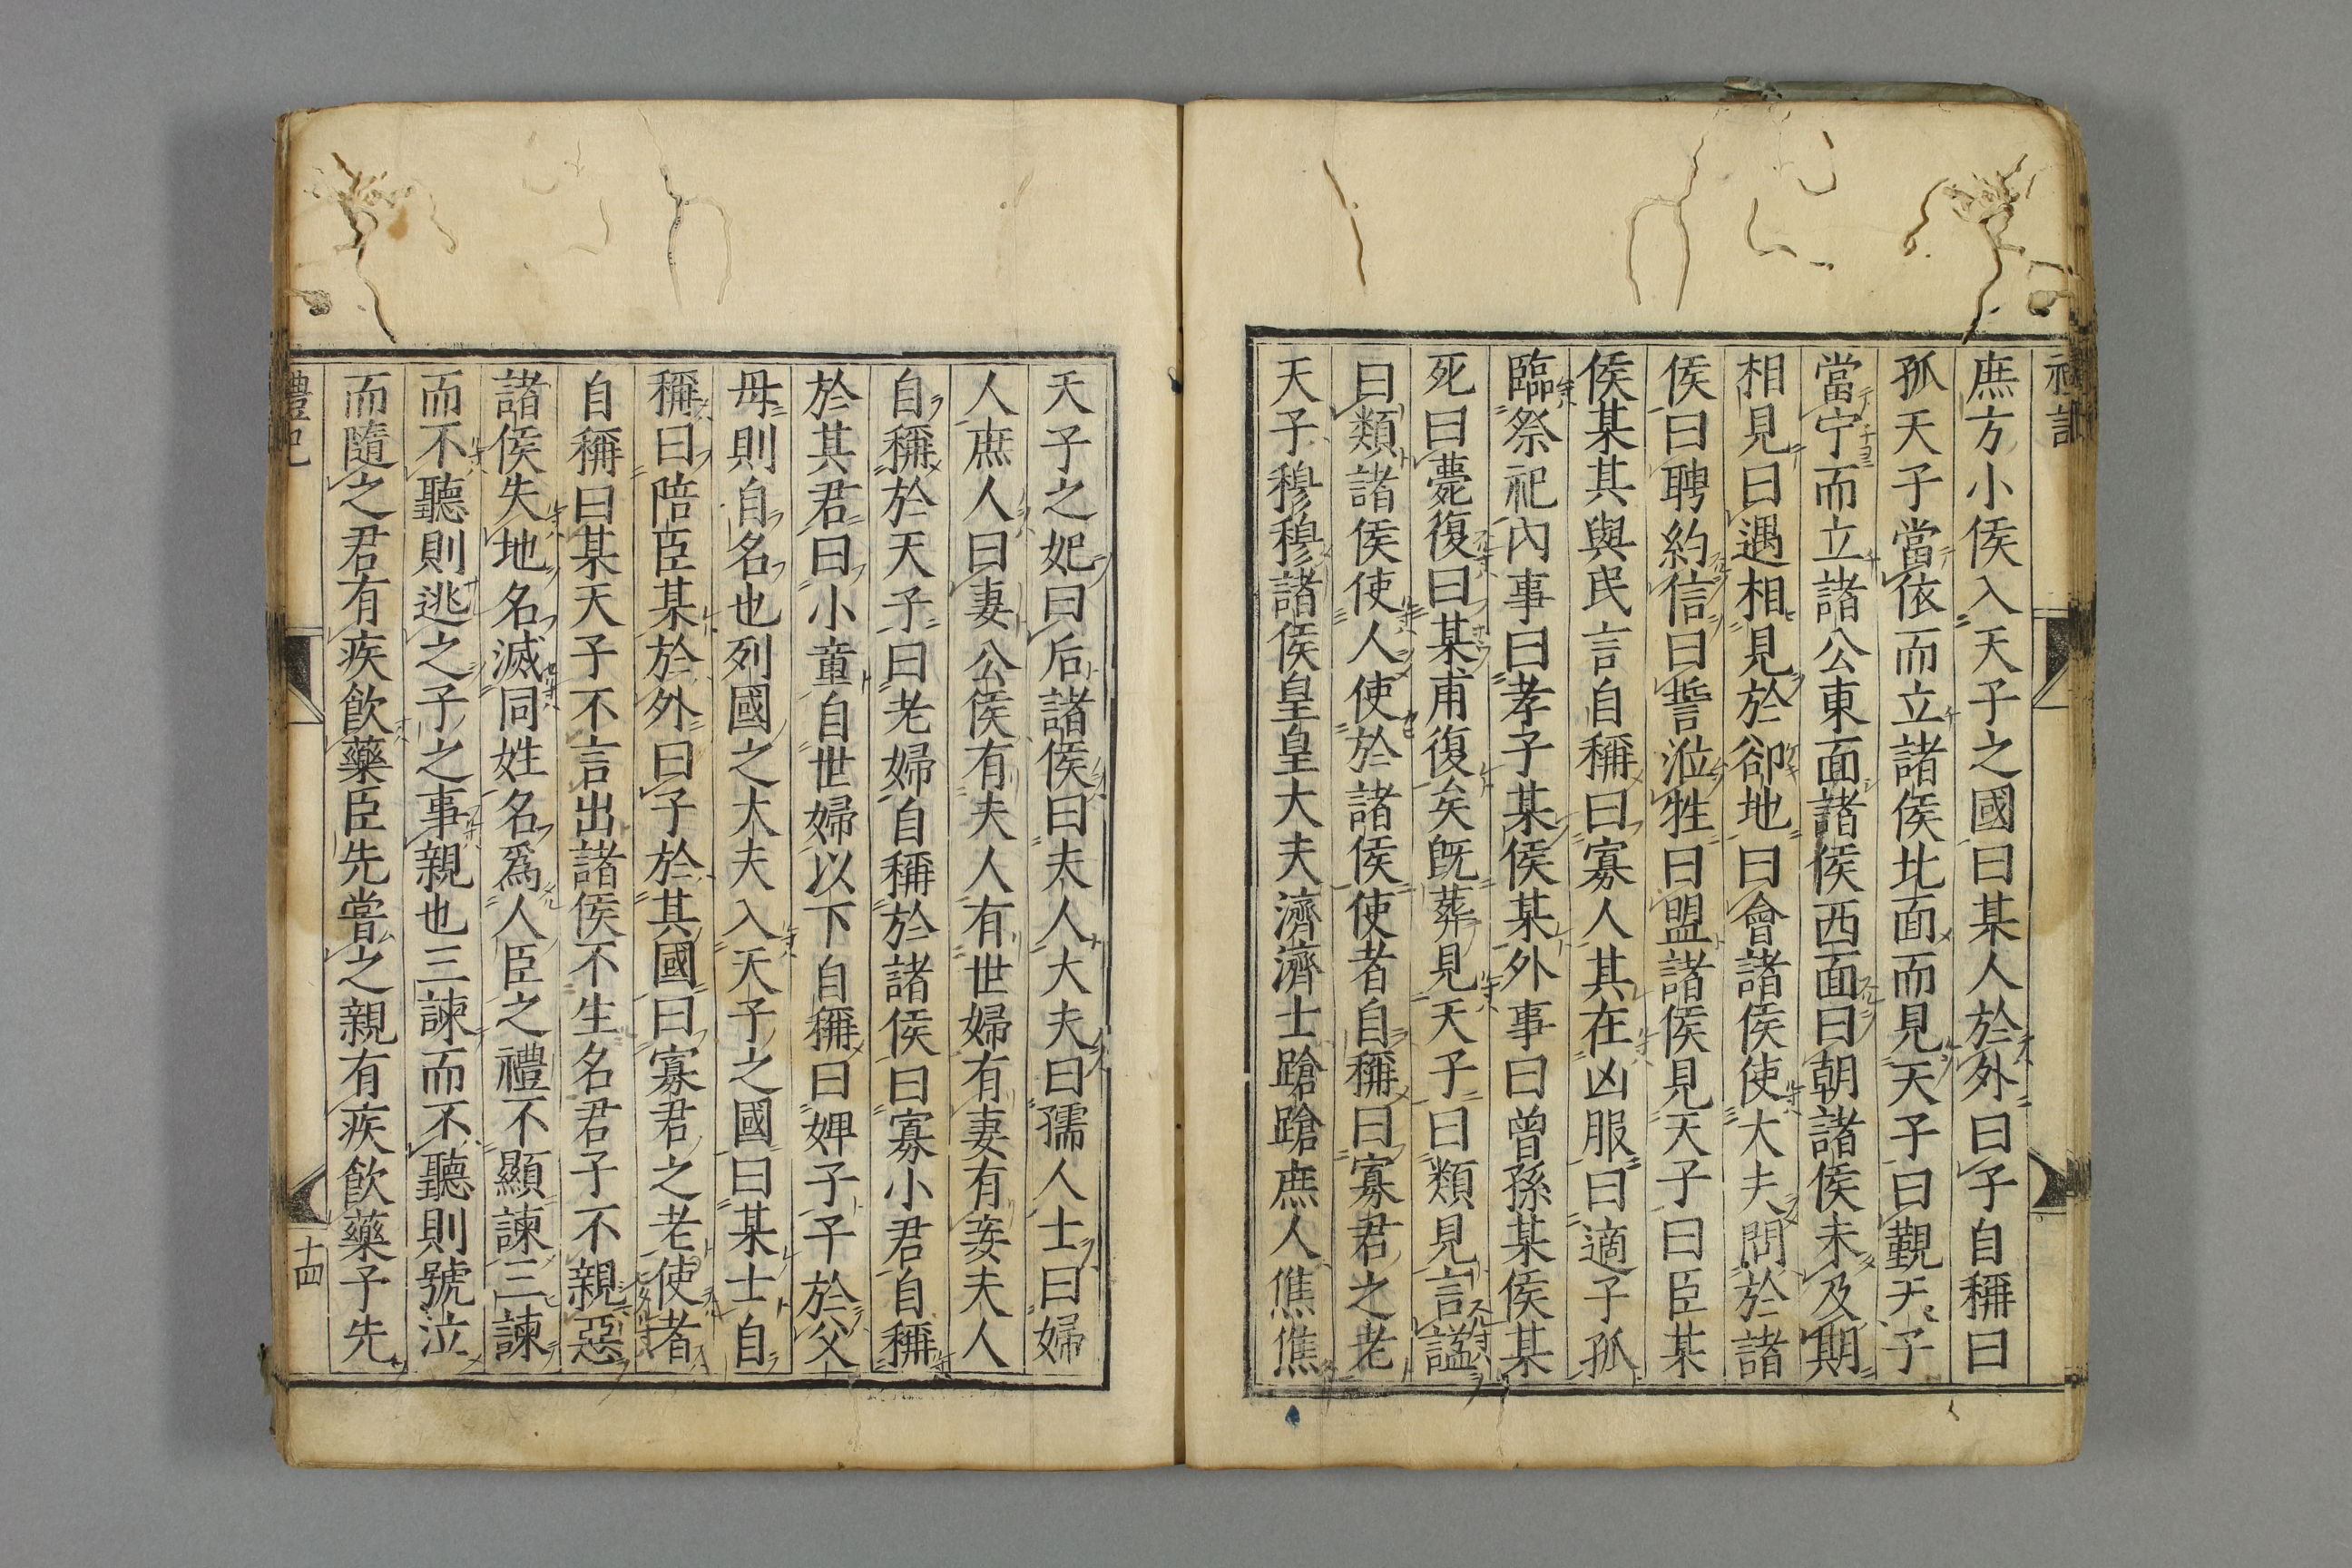 庶方小侯入天子之國曰某人於外曰子自稱曰
孤天子當依而立諸侯北面而見天子曰覲天子
當宁而立諸公東面諸侯西面曰朝諸侯未及期
相見曰遇相見於郤地曰會諸侯使大夫問於諸
侯曰聘約信曰誓涖牲曰盟諸侯見天子曰臣某
侯某其與民言自稱曰寡人其在凶服曰適子孤
臨祭祀內事曰孝子某侯某外事曰曾孫某侯某
死曰薨復曰某甫復矣既葬見天子曰類見言謚
曰類諸侯使人使於諸侯使者自稱曰寡君之老
天子穆穆諸侯皇皇大夫濟濟士蹌蹌庶人僬僬
天子之妃曰后諸侯曰夫人大夫曰孺人士曰婦
人庶人曰妻公侯有夫人有世婦有妻有妾夫人
自稱於天子曰老婦自稱於諸侯曰寡小君自稱
於其君曰小童自世婦以下自稱曰婢子子於父
母則自名也列國之大夫入天子之國曰某士自
稱曰陪臣某於外曰子於其國曰寡君之老使者
自稱曰某天子不言出諸侯不生名君子不親惡
諸侯失地名滅同姓名爲人臣之禮不顯諫三諫
而不聽則逃之子之事親也三諫而不聽則號泣
而隨之君有疾飲藥臣先嘗之親有疾飲藥子先
禮記
十四